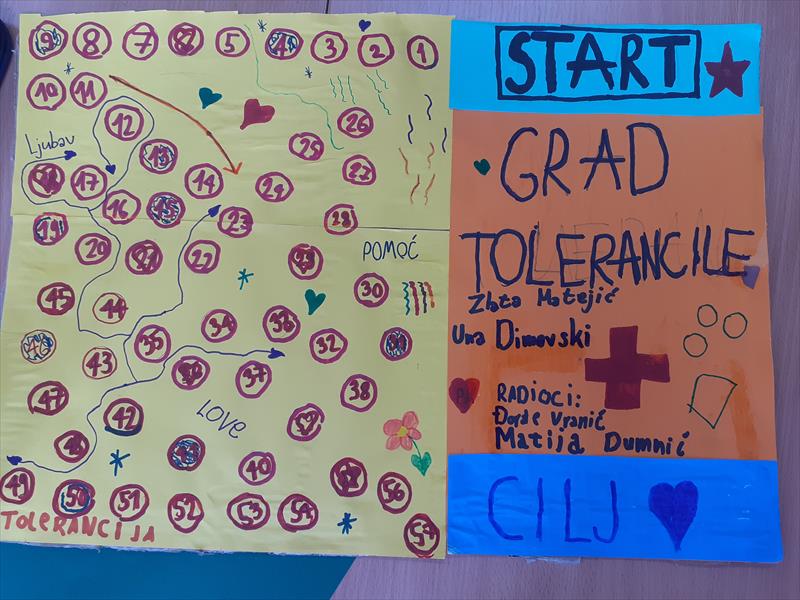 9 8 7 5 4 3 2 1
10 11
12 26
Ljubav 25
17 14 24 27
16 15 23 28
19
20 22
POMOĆ
30
45 44
34 36
35 32
46 43
37 38
47
LOVE
42
40
49 50 51 52 53 54 56
57
TOLERANCIJA
START
GRAD
TOLERANCILE
Zlata Matejić
Una Dimovski
RADIOCI:
Đorđe Vranić
Matija Dumnić
CILJ